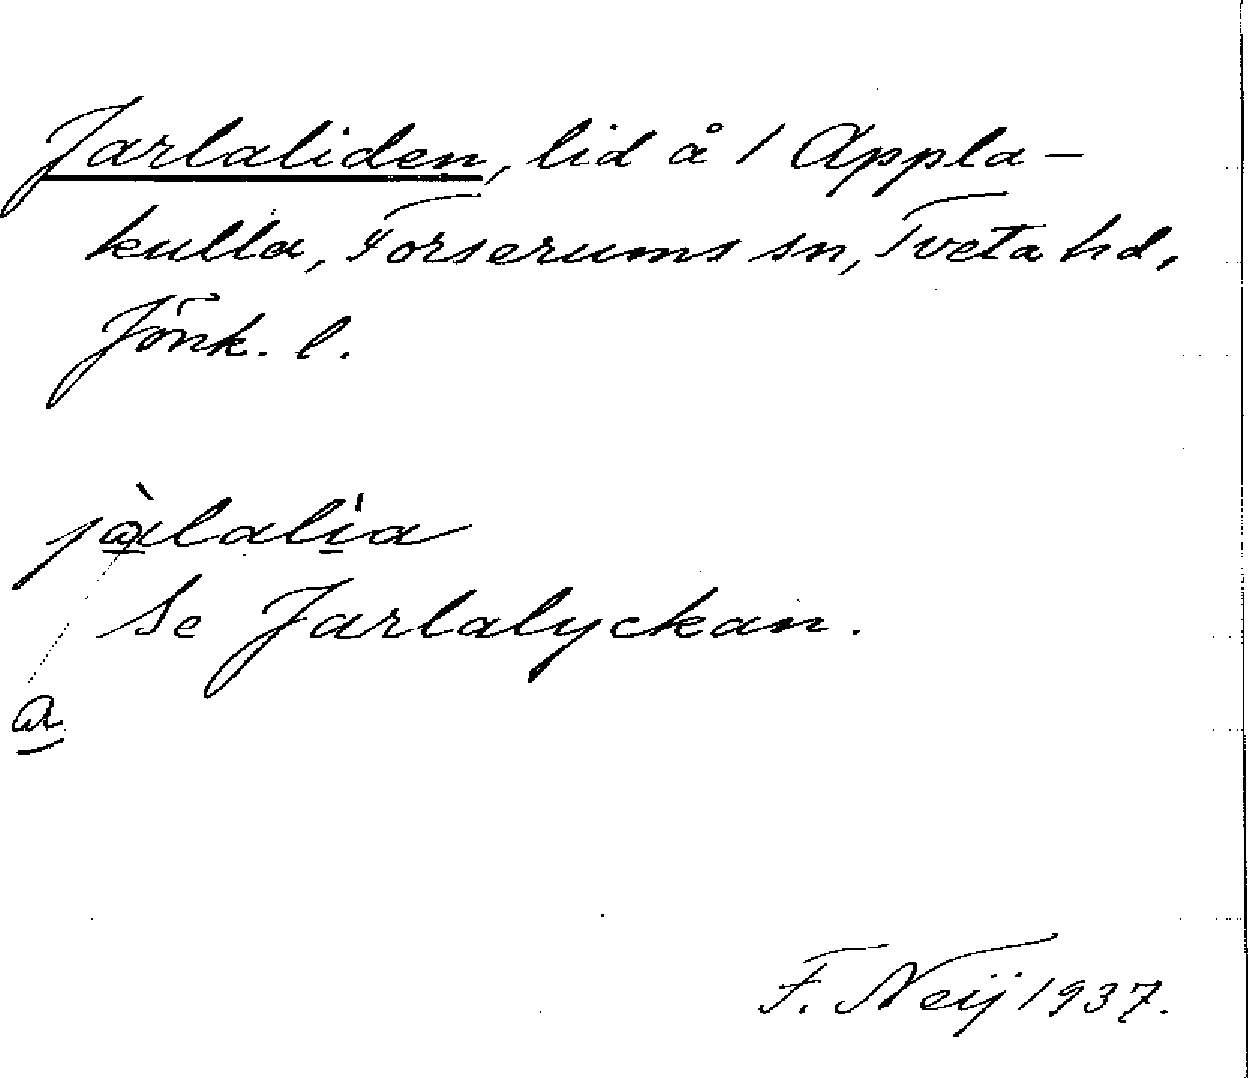 Jarlaliden, lid å 1 Appla-
kulla, Forserums sn, Tveta hd,
Jönk. l.
jàlalía
Se Jarlalyckan.
a
F. Neij 1937.